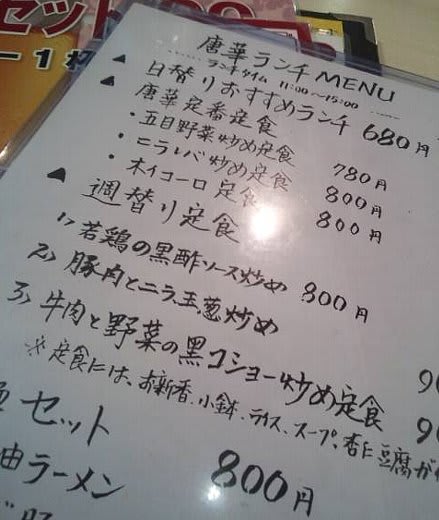 セット
ー1杯
唐華ランチMENU
ランチタイム 11:00〜15:00
▲日替りおすすめランチ 680円
▲唐華定番定食
・五目野菜炒め定食 780円
・ニラレバ炒め定食 800円
・ホイコーロ定食 800円
▲週替り定食
1)若鶏の黒酢ソース炒め 800円
2)豚肉とニラ玉葱炒め
3)牛肉と野菜の黒コショー炒め定食
※定食には、お新香、小鉢、ライス、スープ、杏仁豆腐が
セット 800円
油ラーメン